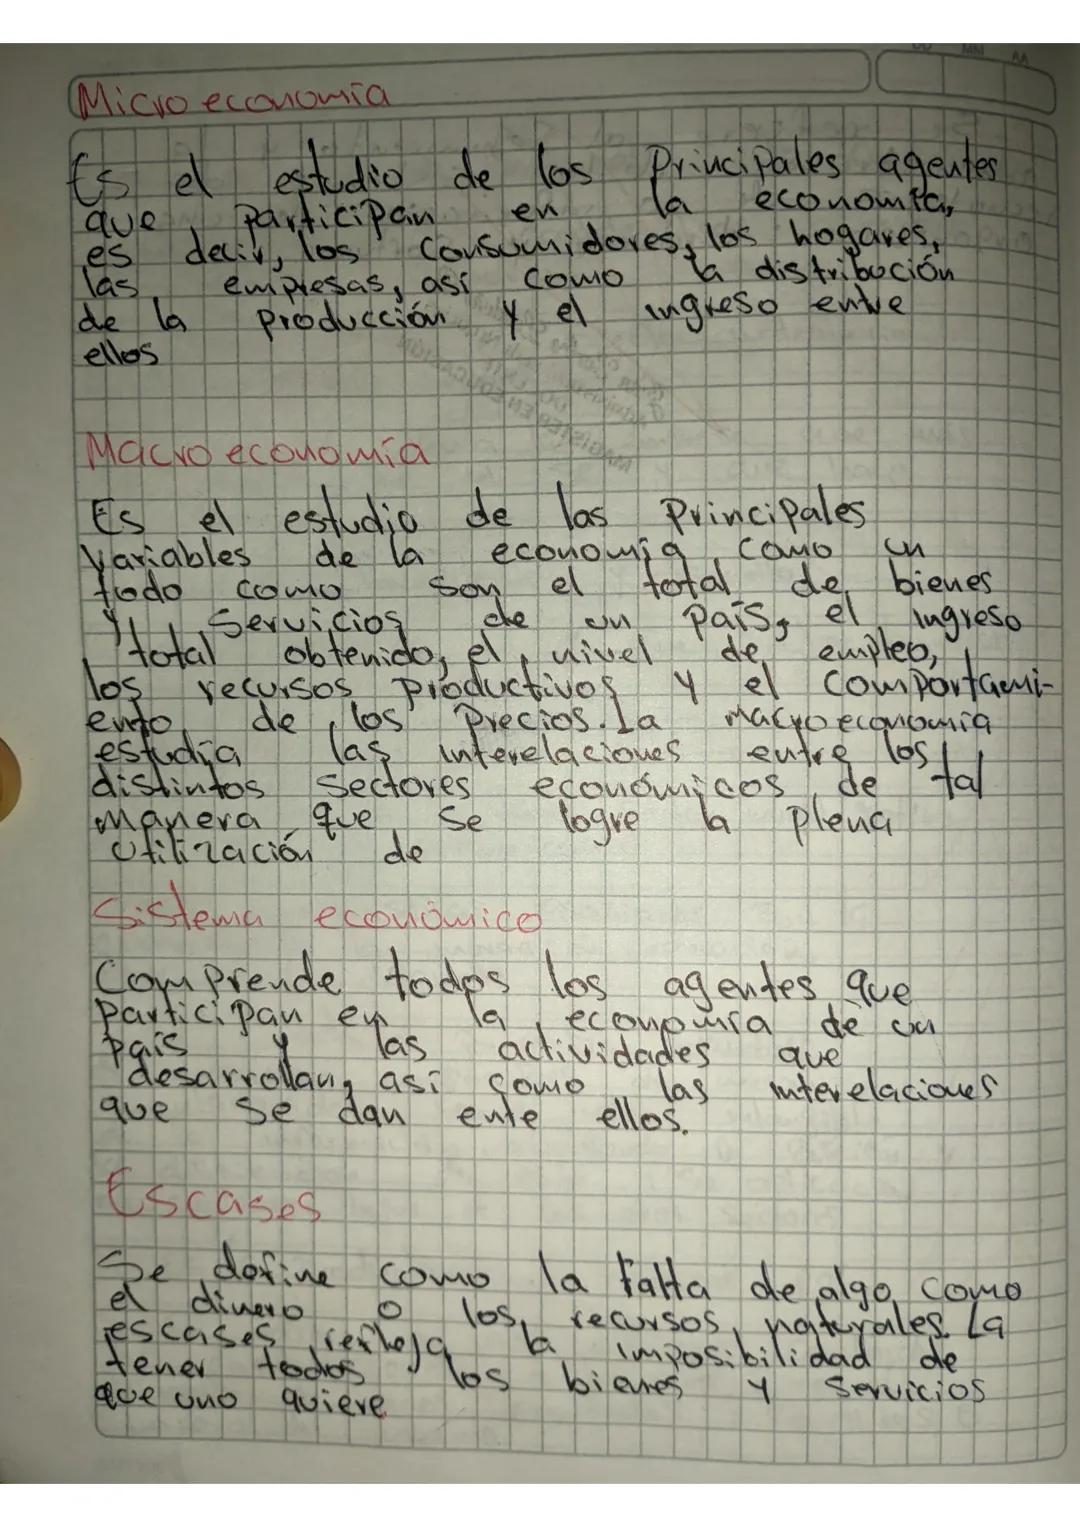 Micro economía
Es el estudio de los Principales agentes
que participan en la economía,
es decir, los consumidores, los hogares,
las empresas, así como la distribución
de la Producción y el ingreso entre
ellos
Macro economía
Es el estudio de las Principales
Variables de la economía como un
todo como son el total de bienes
y Servicios de un país, el ingreso
total obtenido, el nivel de empleo,
los recursos productivos y el comportami-
ento de los Precios. La Macro economía
estudia las interelaciones entre los
distintos Sectores económicos de tal
manera que se logre la plena
utilización de
Sistema económico
Comprende todos los agentes que
Participan en la economía de un
país y las actividades que
desarrollan, así como las interelaciones
que se dan ente ellos.
Escases
Se define como la falta de algo como
el dinero o los recursos naturales. La
escases refleja la imposibilidad de
tener todos los bienes y Servicios
que uno quiere